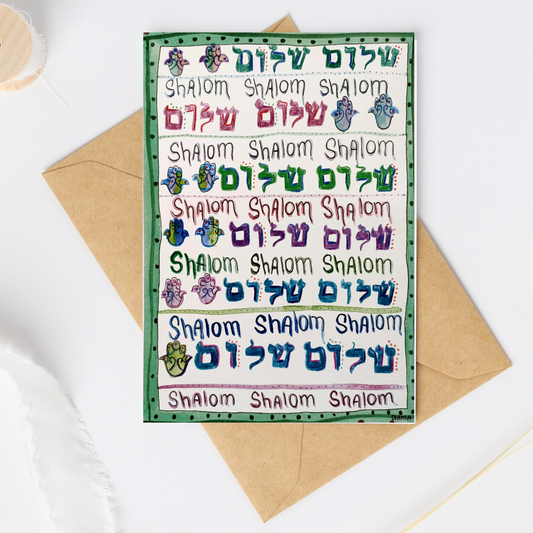 שלום שלום
ShAlom ShAlom ShAlom
שלום שלום
ShAlom ShAlom ShAlom
שלום שלום
ShAlom ShAlom ShAlom
שלום שלום
ShAlom ShAlom ShAlom
שלום שלום
ShAlom ShAlom ShAlom
שלום שלום
ShAlom ShAlom ShAlom